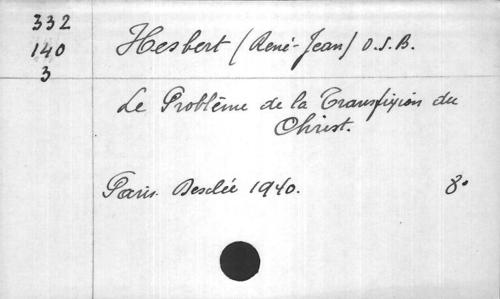 332
140
3
Hesbert (René-Jean) O.S.B.
Le Problème de la Transfixion du
Christ.
Paris. Desclée 1940. 8°